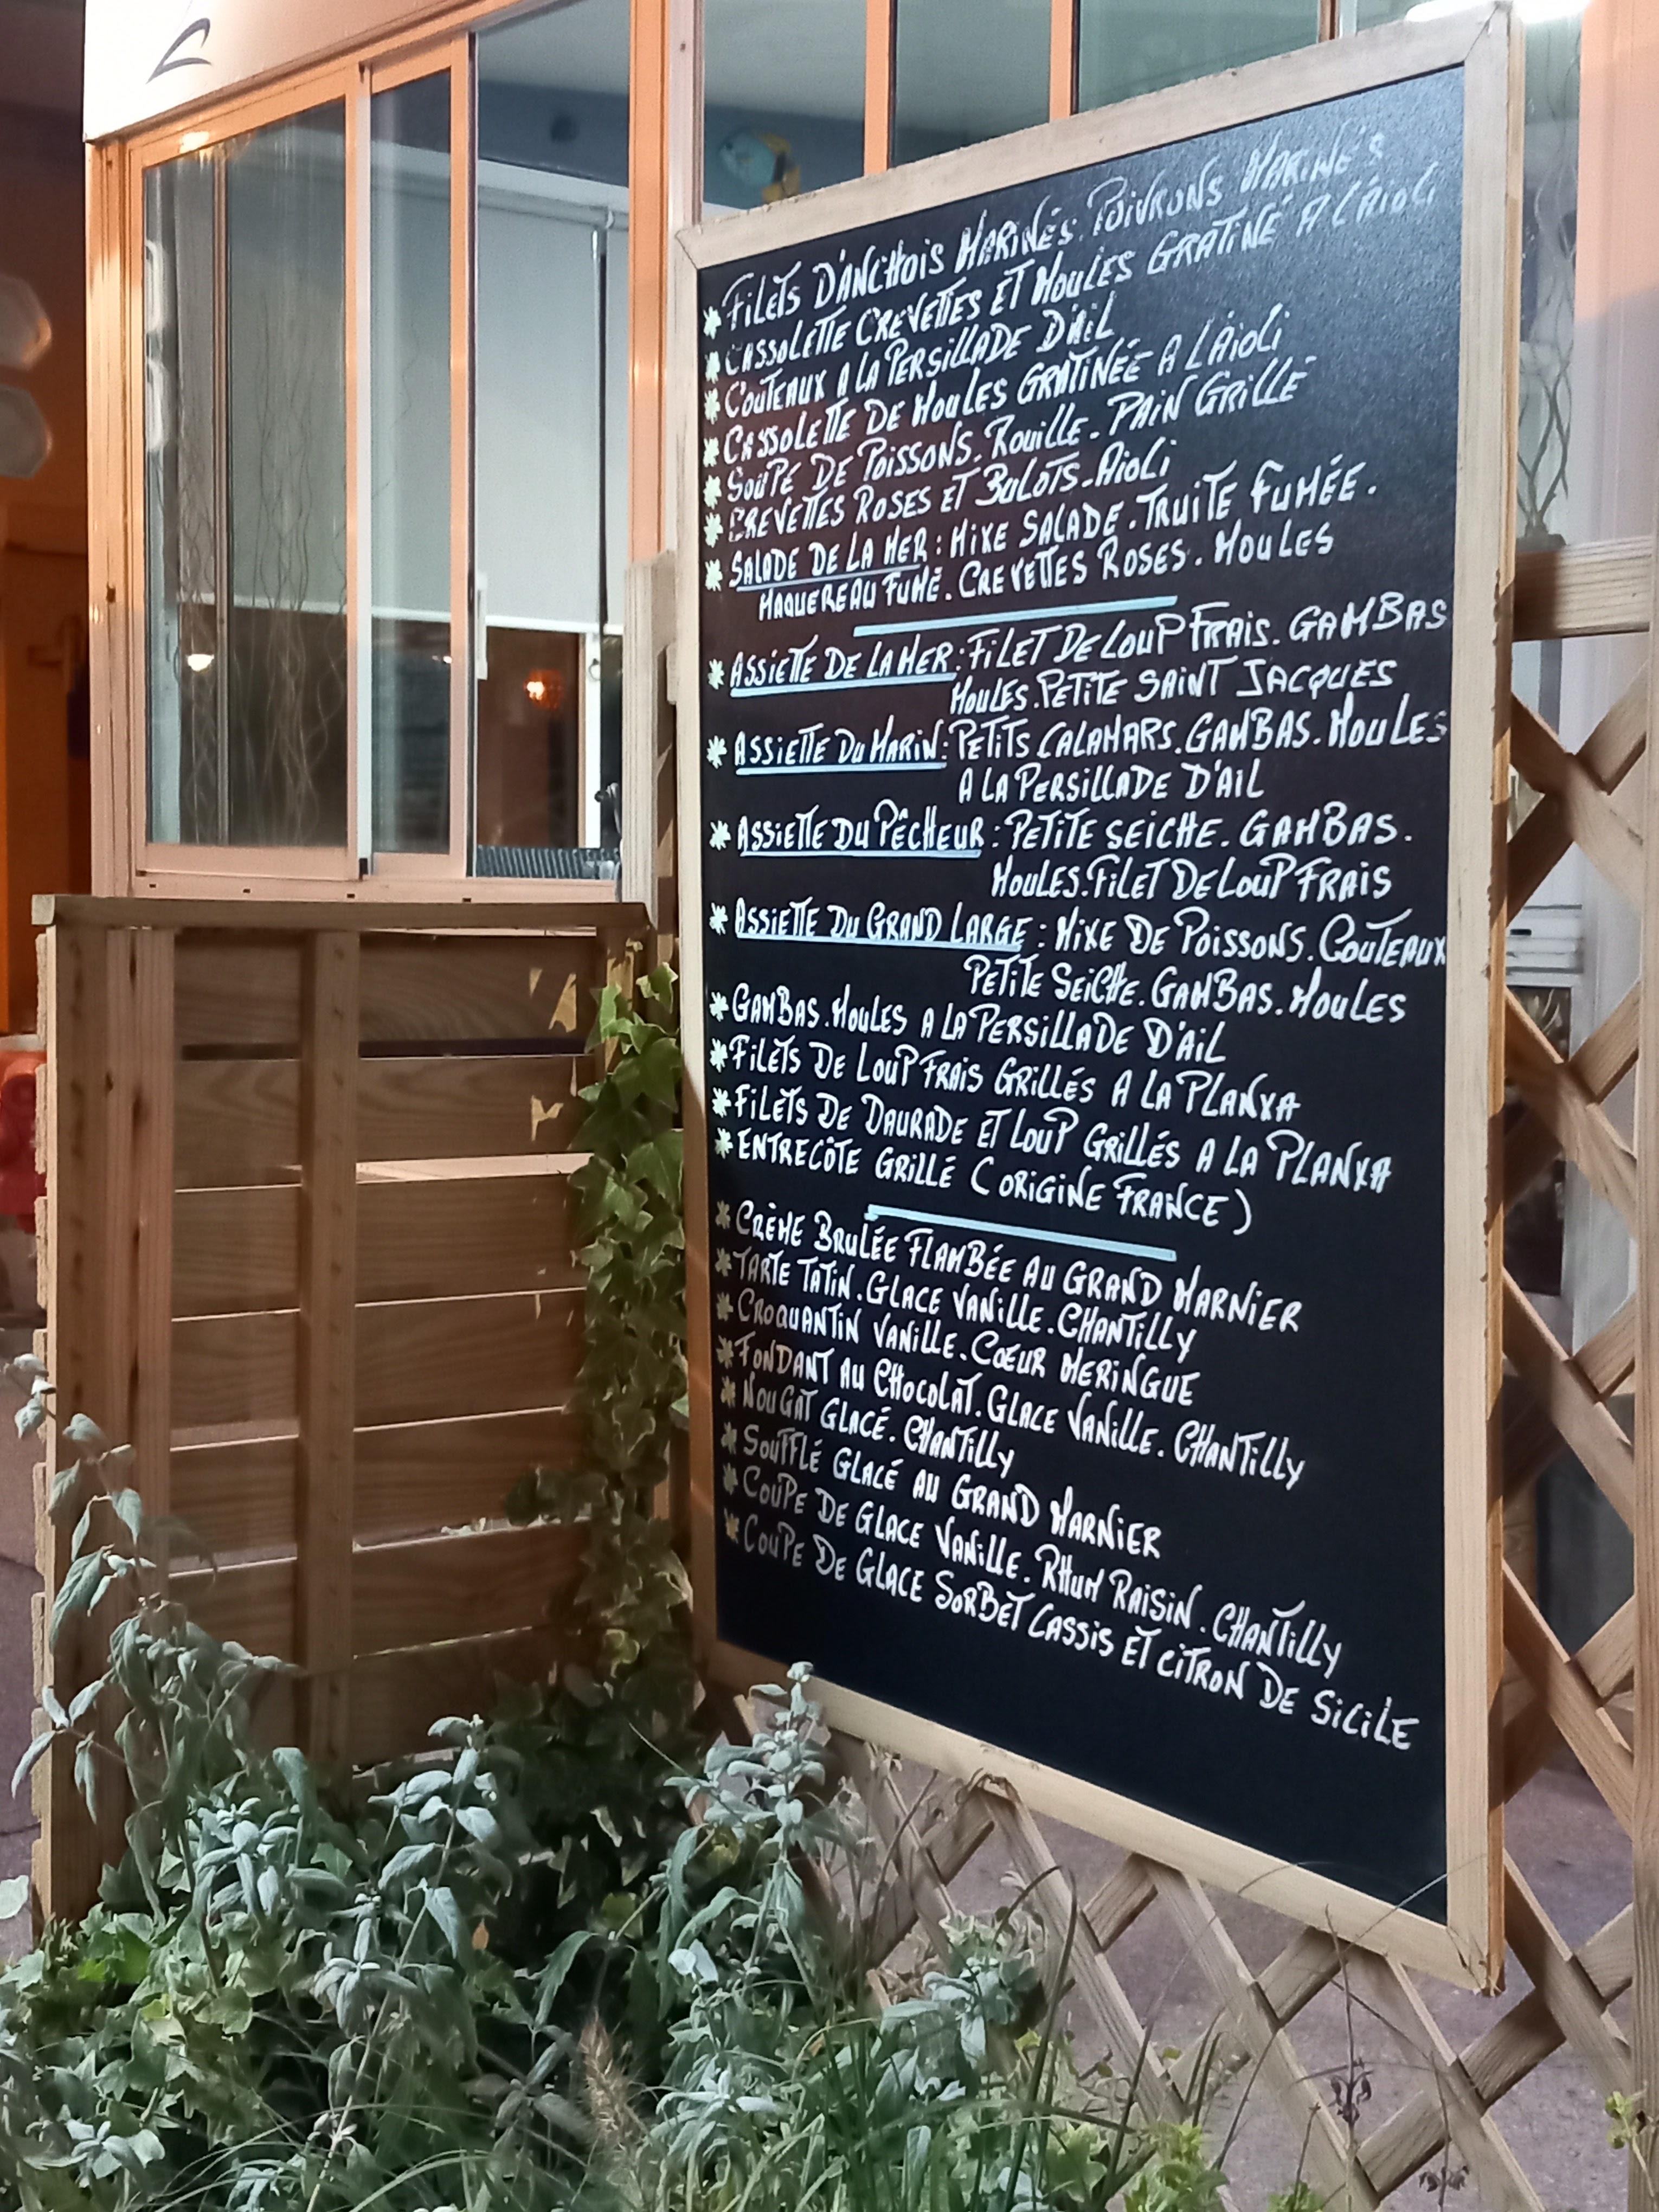 * FILETS D'ANCHOIS MARINÉS. POIVRONS MARINÉS
* CASSOLETTE CREVETTES ET MOULES GRATINÉ A L'AIOLI
* COUTEAUX A LA PERSILLADE D'AIL
* CASSOLETTE DE MOULES GRATINÉE A L'AIOLI
* SOUPE DE POISSONS. ROUILLE. PAIN GRILLÉ
* CREVETTES ROSES ET BULOTS. AIOLI
* SALADE DE LA MER: MIXE SALADE. TRUITE FUMÉE.
MAQUEREAU FUMÉ. CREVETTES ROSES. MOULES
* ASSIETTE DE LA MER: FILET DE LOUP FRAIS. GAMBAS
MOULES. PETITE SAINT JACQUES
* ASSIETTE DU MARIN: PETITS CALAMARS. GAMBAS. MOULES
A LA PERSILLADE D'AIL
* ASSIETTE DU PÊCHEUR: PETITE SEICHE. GAMBAS.
MOULES. FILET DE LOUP FRAIS
* ASSIETTE DU GRAND LARGE: MIXE DE POISSONS. COUTEAUX
PETITE SEICHE. GAMBAS. MOULES
* GAMBAS. MOULES A LA PERSILLADE D'AIL
* FILETS DE LOUP FRAIS GRILLÉS A LA PLANXA
* FILETS DE DAURADE ET LOUP GRILLÉS A LA PLANXA
* ENTRECÔTE GRILLÉ (ORIGINE FRANCE)
* CRÈME BRULÉE FLAMBÉE AU GRAND MARNIER
* TARTE TATIN. GLACE VANILLE. CHANTILLY
* CROQUANTIN VANILLE. CŒUR MERINGUE
* FONDANT AU CHOCOLAT. GLACE VANILLE. CHANTILLY
* NOUGAT GLACÉ. CHANTILLY
* SOUFFLÉ GLACÉ AU GRAND MARNIER
* COUPE DE GLACE VANILLE. RHUM RAISIN. CHANTILLY
* COUPE DE GLACE SORBET CASSIS ET CITRON DE SICILE